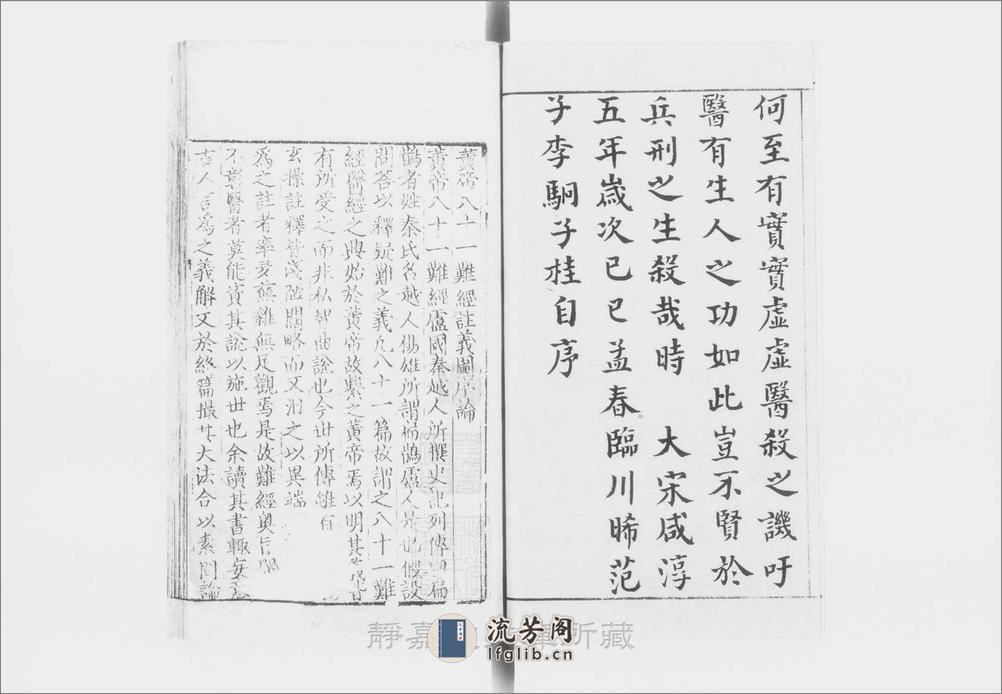 何至有實實虛虛醫殺之譏吁
醫有生人之功如此豈不賢於
兵刑之生殺哉時　大宋咸淳
五年歲次己巳孟春臨川晞范
子李駉子桂自序
黃帝八十一難經註義圖序論
黃帝八十一難經盧國秦越人所撰史記列傳曰扁
鵲者姓秦氏名越人揚雄所謂扁鵲盧人是也假設
問荅以釋疑難之義凡八十一篇故謂之八十一難
經醫經之興始於黃帝故繫之黃帝焉以明其
有所受之而非私智曲說也今世所傳雖有
玄操註釋皆淺陋闊略而又汨之以異端
為之註者率多蕪雜無足觀焉是故難經奧旨
不彰醫者莫能資其說以施世也余讀其書輙妄
古人言為之義解又於終篇撮其大法合以素問論
靜嘉 所藏
流芳阁
lfglib.cn